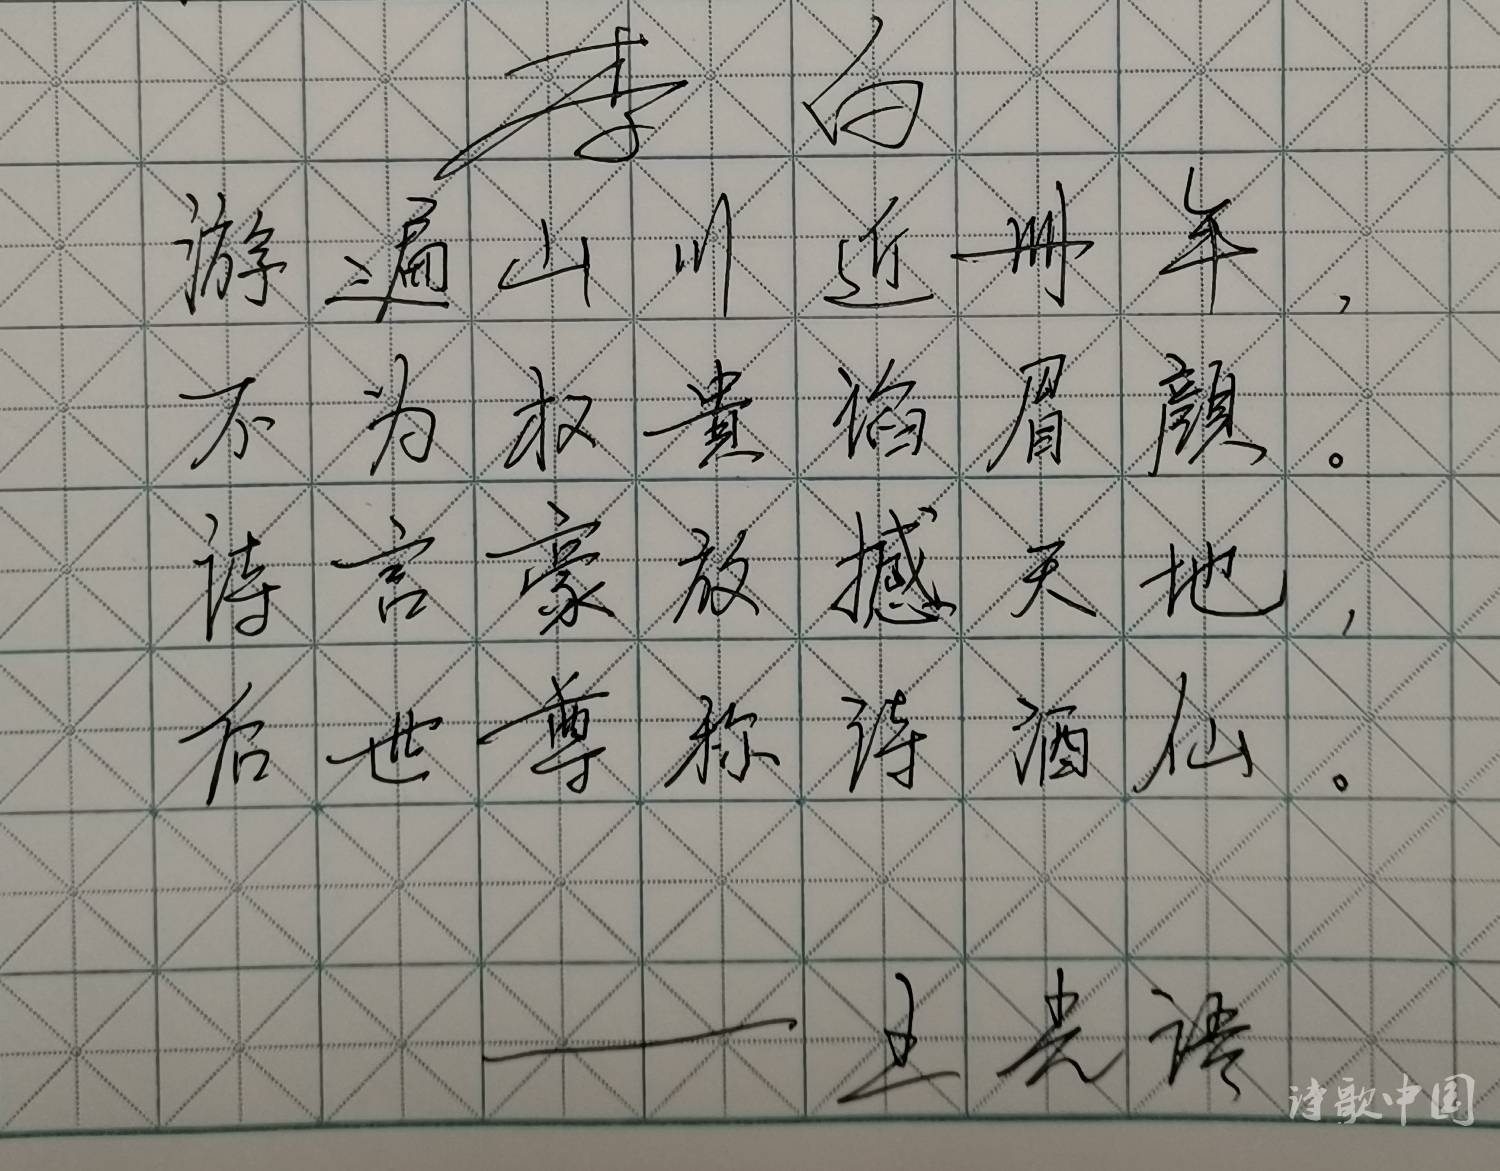 李白
游遍山川近卌年，
不为权貴谄眉颜。
诗言豪放撼天地，
后世尊称诗酒仙。
——王光语
诗歌中国